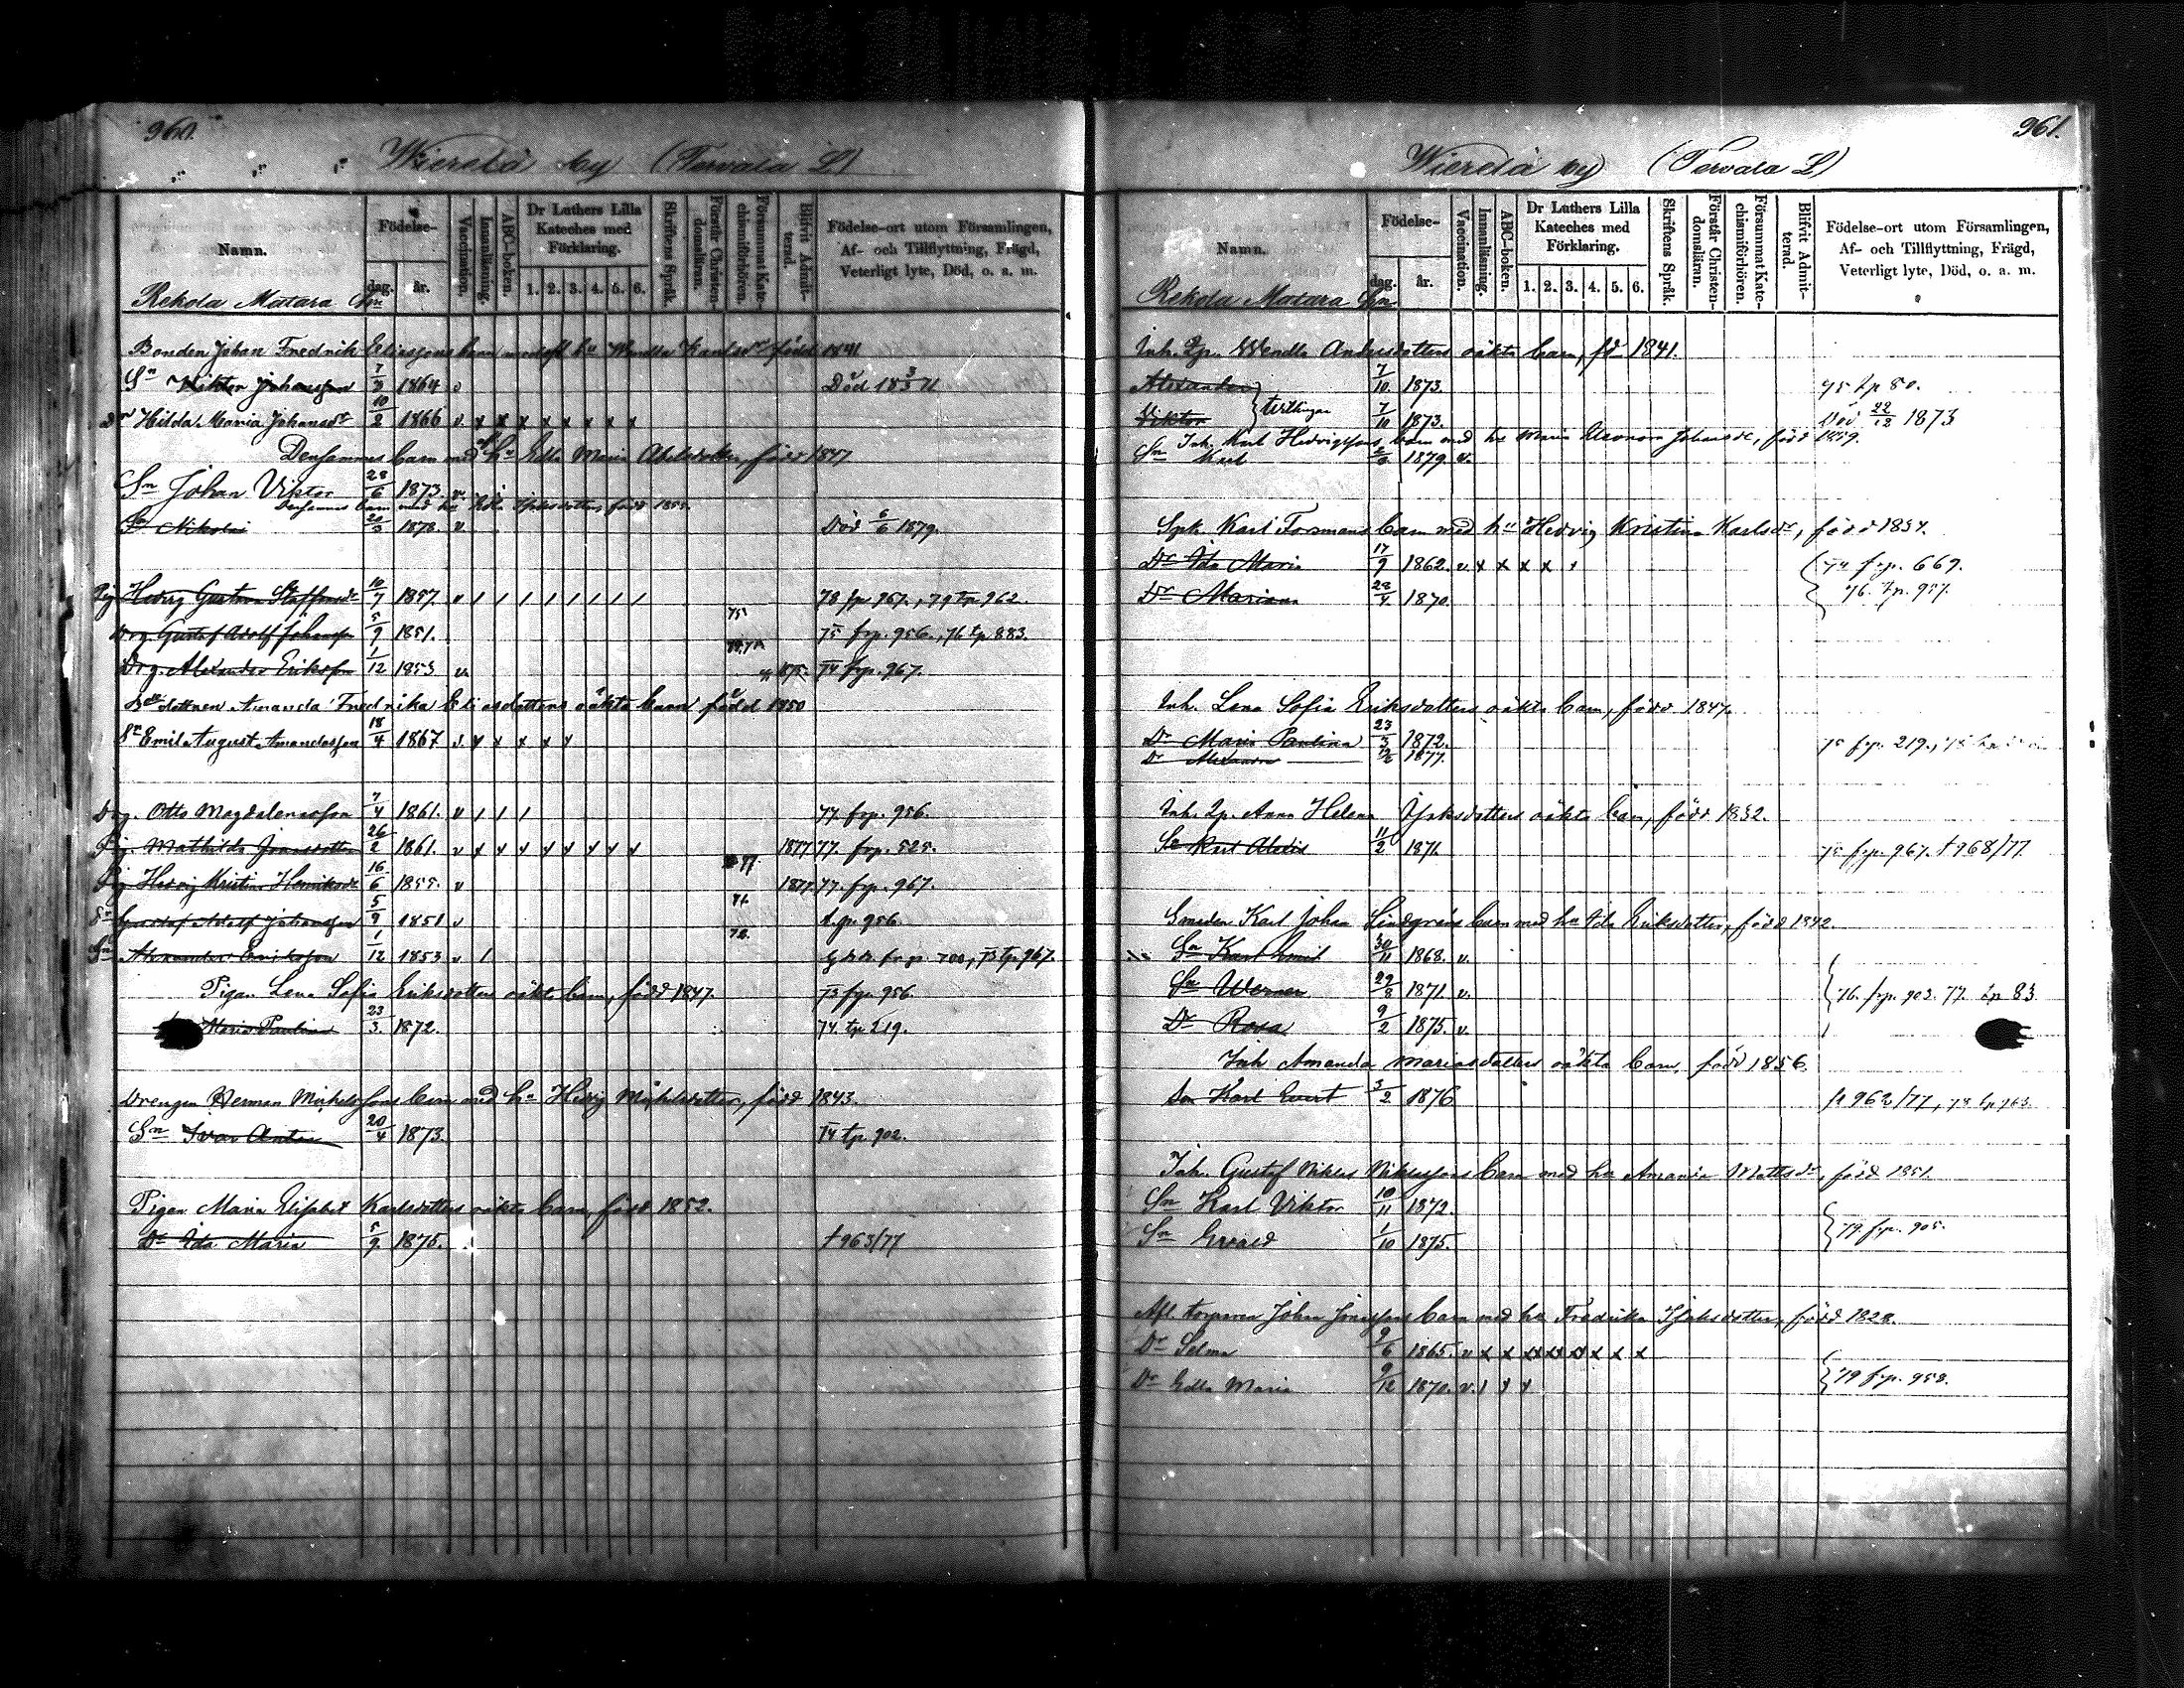 960.
Wierelä by (Tervala L)
Namn.
Födelse-
dag.
år.
Vaccination.
Innanläsning.
ABC-boken.
Dr Luthers Lilla Kateches med Förklaring.
1. 2. 3. 4. 5. 6.
Skriftens Språk.
Förstår Christen-domsläran.
Försummat Kate-chismiförhören.
Blifvit Admit-terad.
Födelse-ort utom Församlingen, Af- och Tillflyttning, Frägd, Veterligt lyte, Död, o. a. m.
Rekola Matara Hm
Bonden Johan Fredrik Eliassons barn med afl hu Wendla Karlsdr född 1841
Sn Viktor Johansson 7/3 1864 v Död 18 3/3 71
Dr Hilda Maria Johansdr 10/2 1866 v x x x x x x x x
Densammes barn med hu Edla Maria Abelsdotter, född 1847
Sn Johan Viktor 28/6 1873 v
Densammes barn med hu född 1855.
Sn Nikolai 1878. v Död 6/6 1879.
Pig Hedvig Gustava Staffansdr 10/7 1857 v / / / / / / / / 78 fp. 967., 79 tp. 962.
Drg. Gustaf Adolf Johansson 5/9 1851. 75 75 frp. 956., 76 tp. 883.
Drg. Alexander Eriksson 1/12 1853 v. 74 frp. 967.
Bdedottren Amanda Fredrika Eliasdotters oäkta barn född 1850
Sn Emil August Amandasson 18/4 1867 v. x x x x x
Drg. Otto Magdalenasson 7/4 1861. v / / / 77. frp. 956.
Pig. Mathilda Jonasdotter 26/2 1861. v x x x x x x x x 1877 77. frp. 525.
Pig Hedvig Kristina Henriksdr 16/6 1855. v 1877 77. frp. 967.
Sn Gustaf Adolf Johansson 5/9 1851 v 71. f. p. 956.
Sn Alexander Eriksson 1/12 1853 v / 72. 700, 73 tp. 967.
Pigan Lena Sofia Eriksdotters oäkta barn, född 1847. 73 frp. 956.
Maria Paulina 23/3 1872. 74. tp. 219.
Drengen Herman Mickelssons barn med hu Hedvig Mickelsdotter, född 1843.
Sn Ivar Anton 20/4 1873. 74 tp. 902.
Pigan Maria Elisabet Karlsdotters oäkta barn, född 1852.
Dr Ida Maria 5/9 1875. + 963/77
961.
Wierelä by (Tervala L)
Namn.
Födelse-
dag.
år.
Vaccination.
Innanläsning.
ABC-boken.
Dr Luthers Lilla Kateches med Förklaring.
1. 2. 3. 4. 5. 6.
Skriftens Språk.
Förstår Christen-domsläran.
Försummat Kate-chismiförhören.
Blifvit Admit-terad.
Födelse-ort utom Församlingen, Af- och Tillflyttning, Frägd, Veterligt lyte, Död, o. a. m.
Rekola Matara Hm
Inh. Qp. Wendla Andersdotters oäkta barn, fd 1841.
Alexander 7/10 1873. 75 tp 80.
Viktor } tvillingar 7/10 1873. Död 22/12 1873
Inh. Karl Hedvigssons barn med hu Maria Eleonora Johansdr, född 1859.
Sn Karl 1879 v.
Spk. Karl Forsmans barn med hu Hedvig Kristina Karlsdr, född 1834.
Dr Ida Maria 17/9 1862. v x x x x 74 frp. 669.
Dr Mariana 28/4 1870. 76. tp. 957.
Inh. Lena Sofia Eriksdotters oäkta barn, född 1847.
Dr Maria Paulina 23/3 1872. 75 frp. 219.,
Dr Alexandra 1877.
Inh. Qp. Anna Helena Isaksdotters oäkta barn, född 1832.
Sn Karl Alexis 11/2 1871. 75 frp. 967. + 968/77.
Smeden Karl Johan Lindgrens barn med hu Ida Eriksdotter, född 1842.
Sn Karl Emil 30/11 1868. v.
Sn Werner 29/8 1871. v. 76. frp. 903. 77. tp 83
Dr Rosa 9/2 1875. v.
Inh Amanda Mariasdotters oäkta barn, född 1856.
Son Karl Evert 3/2 1876 fr 962/77,
Inh. Gustaf Niklas Niklassons barn med hu Amanda Mattsdr, född 1851.
Sn Karl Viktor 10/11 1872
Sn Ewald 1/10 1875. 79. frp. 905.
Afl. torparen Johan Jonassons barn med hu Fredrika Isaksdotter, född 1828.
Dr Selma 9/6 1865. v x x x x x x x x
Dr Edla Maria 9/12 1870. v. 79 frp. 958.